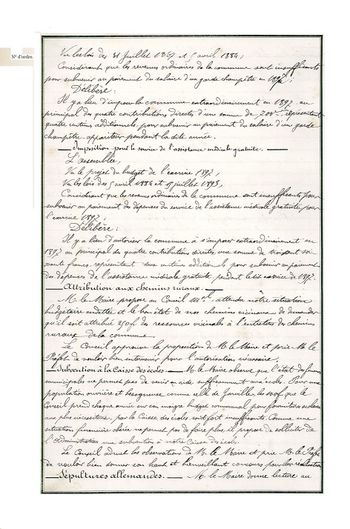 N° d'ordre.
Vu les lois des 31 Juillet 1867 et 5 avril 1884;
Considérant que les revenus ordinaires de la commune sont insuffisants
pour subvenir au paiement du salaire d'un garde champêtre en 1897;
Délibère:
Il y a lieu d'imposer la commune extraordinairement en 1897 au
principal des quatre contributions directes d'une somme de représentant
quatre centimes additionnels pour subvenir au paiement du salaire d'un garde
champêtre appariteur pendant la dite année.
Imposition pour le service de l'assistance médicale gratuite.
L'assemblée,
Vu le projet de budget de l'exercice 1897;
Vu les lois des 5 avril 1884 et 15 juillet 1893;
Considérant que les revenus ordinaires de la commune sont insuffisants pour
subvenir au paiement des dépenses du service de l'assistance médicale gratuite pour
l'exercice 1897;
Délibère:
Il y a lieu d'autoriser la commune à s'imposer extraordinairement en
1897 au principal des quatre contributions directes une somme de
francs, représentant centimes additionnels pour subvenir au paiement
des dépenses de l'assistance médicale gratuite pendant le dit exercice de 1897.
Attribution aux chemins ruraux.
M. le Maire propose au Conseil attendu notre situation
budgétaire et le bon état de nos chemins vicinaux de demander
qu'il soit attribué des ressources vicinales à l'entretien des chemins
ruraux de la commune.
Le Conseil approuve la proposition de M. le Maire et prie M. le
Préfet de vouloir bien intervenir pour l'autorisation nécessaire.
Subvention à la Caisse des écoles. M. le Maire observe que l'état des finances
municipales ne permet pas de venir en aide suffisamment aux écoles. Pour une
population ouvrière et besogneuse comme celle de
Conseil prend chaque année sur son maigre budget communal pour fournitures scolaires
aux plus nécessiteux, par la Caisse des écoles sont insuffisants. Comme notre
situation financière obérée ne permet pas de faire plus, il propose de solliciter de
l'administration une subvention à notre Caisse des écoles.
Le Conseil admet les observations de M. le Maire et prie M. le Préfet
de vouloir bien donner son haut et bienveillant concours pour leur réalisation.
Sépultures allemandes. M. le Maire donne lecture au